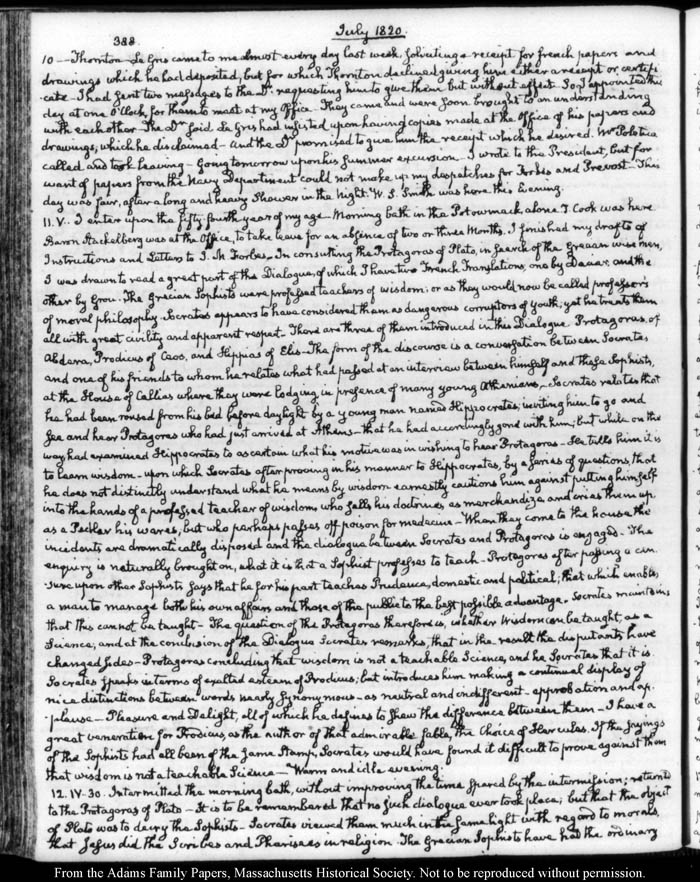 388
July 1820.
10 — Thornton Le Gris came to me almost every day last week soliciting a receipt for french papers and
drawings which he had deposited, but for which Thornton declined giving him either a receipt or certifi
cate — I had sent two messages to the Dr. requesting him to give them but without effect. So I appointed this
day at one O'Clock, for them to meet at my Office. They came and were soon brought to an understanding
with each other. The Dr. said Le Gris had insisted upon having copies made at the Office of his papers and
drawings, which he disclaimed — And the Dr. promised to give him the receipt which he desired. Mr Poletica
called and took leaving — Going tomorrow upon his summer excursion. I wrote to the President, but for
want of papers from the Navy Department could not make up my despatches for Forbes and Prevost. This
day was fair, after a long and heavy Shower in the Night. W. S. Smith was here this Evening.
11. V. I enter upon the fifty-fourth year of my age — Morning bath in the Potowmack, alone. T. Cook was here
Baron Stackelberg was at the Office, to take leave for an absence of two or three Months. I finished my drafts of
Instructions and Letters to J. M Forbes. In consulting the Protagoras of Plato, in search of the Grecian wise men,
I was drawn to read a great part of the Dialogue, of which I have two French Translations, one by Dacier, and the
other by Grou. The Grecian Sophists were professed teachers of wisdom; or as they would now be called professors
of moral philosophy. Socrates appears to have considered them as dangerous corruptors of youth, yet he treats them
all with great civility and apparent respect. There are three of them introduced in this Dialogue. Protagoras, of
Abdera, Prodicus of Ceos, and Hippias of Elis — The form of the discourse is a conversation between Socrates
and one of his friends to whom he relates what had passed at an interview between himself and these Sophists,
at the House of Callias where they were lodging, in presence of many young Athenians. Socrates relates that
he had been roused from his bed before daylight by a young man named Hippocrates, inviting him to go and
see and hear Protagoras who had just arrived at Athens — that he had accordingly gone with him; but while on the
way had examined Hippocrates to ascertain what his motive was in wishing to hear Protagoras — He tells him it is
to learn wisdom — upon which Socrates after proving in his manner to Hippocrates, by a series of questions, that
he does not distinctly understand what he means by wisdom earnestly cautions him against putting himself
into the hands of a professed teacher of wisdom, who sells his doctrines, as merchandize and cries them up
as a Pedler his wares, but who perhaps passes off poison for medecine — When they come to the house the
incidents are dramatically disposed and the dialogue between Socrates and Protagoras is engaged. The
enquiry is naturally brought on, what it is that a Sophist professes to teach — Protagoras after passing a cen
sure upon other Sophists says that he for his part teaches Prudence, domestic and political; that which enables
a man to manage both his own affairs and those of the public to the best possible advantage. Socrates maintains
that this cannot be taught — The question of the Protagoras therefore is, whether Wisdom can be taught, as a
Science, and at the conclusion of the Dialogue Socrates remarks, that in the result the disputants have
changed sides — Protagoras concluding that wisdom is not a teachable Science, and he Socrates that it is.
Socrates speaks in terms of exalted esteem of Prodicus; but introduces him making a continual display of
nice distinctions between words nearly synonymous — as neutral and indifferent — approbation and ap-
-plause — Pleasure and Delight, all of which he defines to shew the difference between them — I have a
great veneration for Prodicus, as the author of that admirable fable, the Choice of Hercules. If the sayings
of the Sophists had all been of the same stamp, Socrates would have found it difficult to prove against them
that wisdom is not a teachable Science — Warm and idle evening.
12. IV-30. Intermitted the morning bath, without improving the time spared by the intermission; returned
to the Protagoras of Plato — It is to be remembered that no such dialogue ever took place; but that the object
of Plato was to decry the Sophists — Socrates viewed them much in the same light with regard to morals,
that Jesus did the Scribes and Pharisees in religion. The Grecian Sophists have had the ordinary
From the Adams Family Papers, Massachusetts Historical Society. Not to be reproduced without permission.